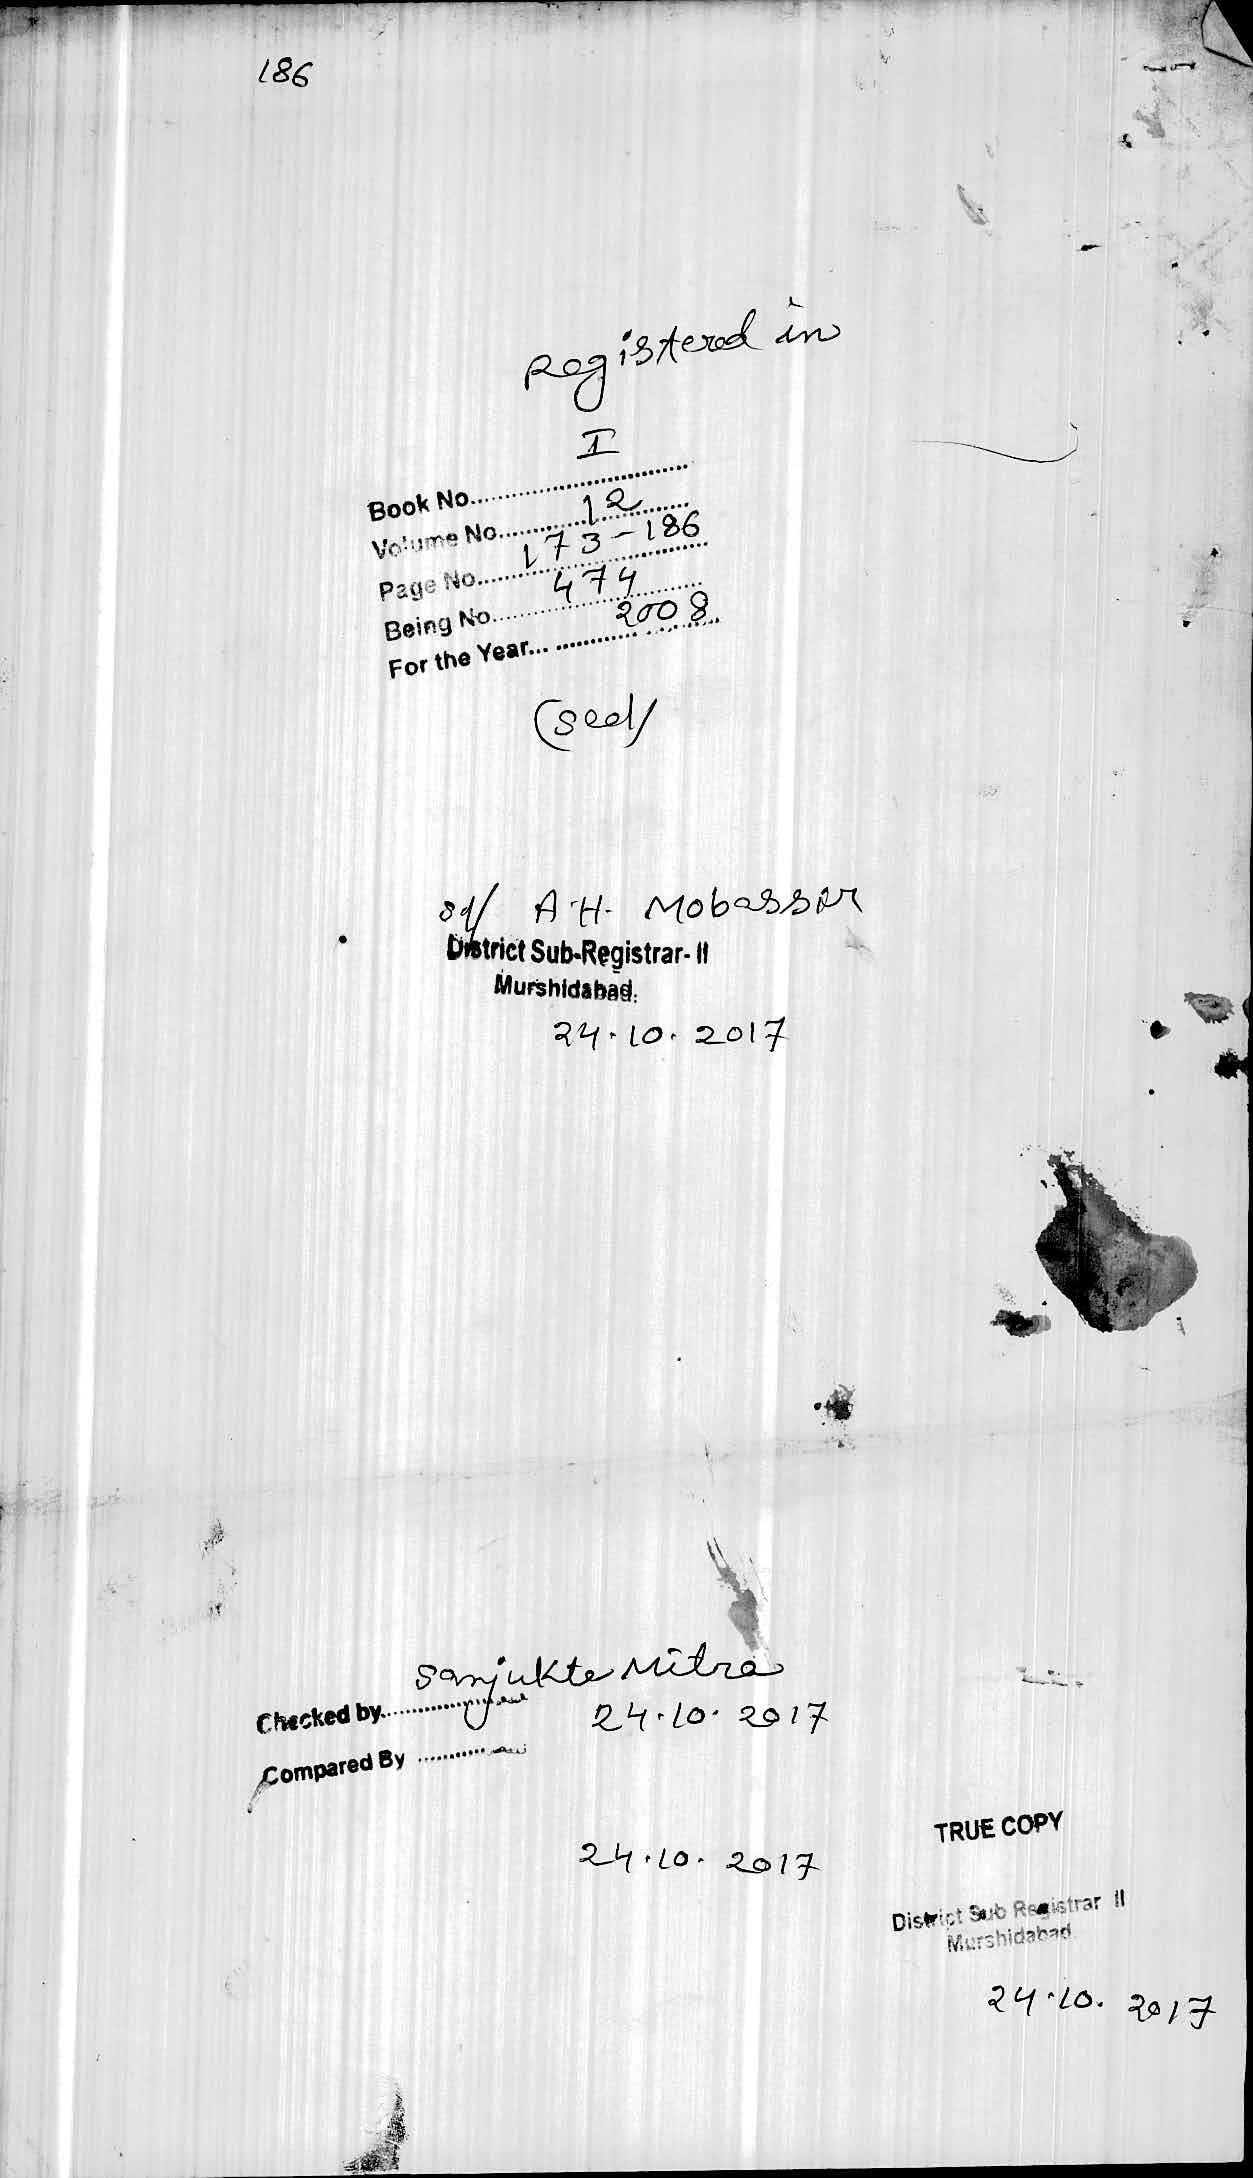 186
Registered in
Book No. I
Volume No. 12
Page No. 173-186
Being No. 474
For the Year... 2008
(Seal)
Sd/ A.H. Mobasser
District Sub-Registrar- II
Murshidabad.
24.10.2017
Sanjukta Mitra
Checked by 24.10.2017
Compared By
24.10.2017
TRUE COPY
District Sub Registrar II
Murshidabad
24.10.2017